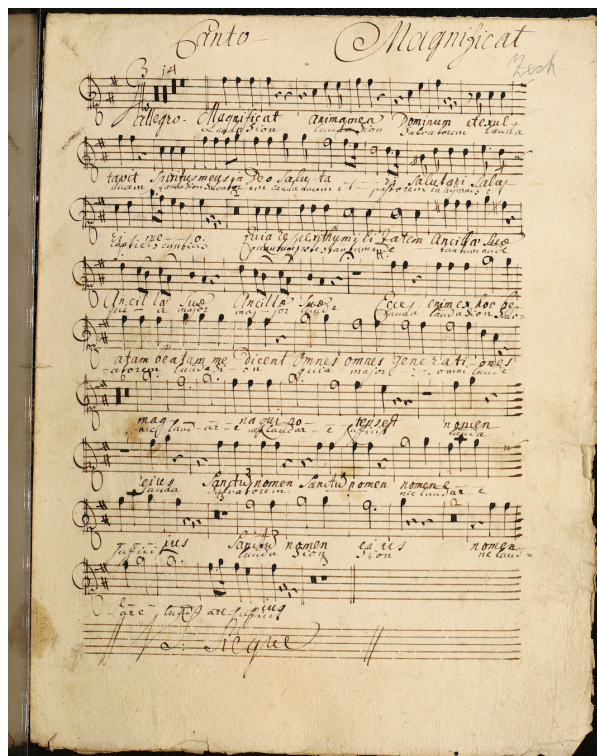 Canto Magnificat
Zech
14
Allegro. Magnificat anima mea Dominum et exul=
Lauda Sion lauda Sion Salvatorem lauda
tavit Spiritus meus in Deo Saluta ri Salutari Salu=
ducem lauda Sion Salvatorem lauda ducem pastorem in hymnis
2
ri me o. Quia respexit humilitatem Ancillæ Suæ
canticis
Ancillæ Suæ Ancillæ Suæ Ecce enim ex hoc be=
major major lauda lauda Sion Salv=
atam beatam me Dicent Omnes omnes generationes
=atorem lauda Sion quia major omni laude
mag na qui po tens est nomen
nec laudare nec laudare sufficis lauda
eius Sanctum nomen Sanctum nomen nomen e
lauda Salvatorem nec laudare
2
sufficis ius Sanctum nomen eius nomen
lauda Sion Sion nec laud=
e ius
are sufficis are sufficis
Seque